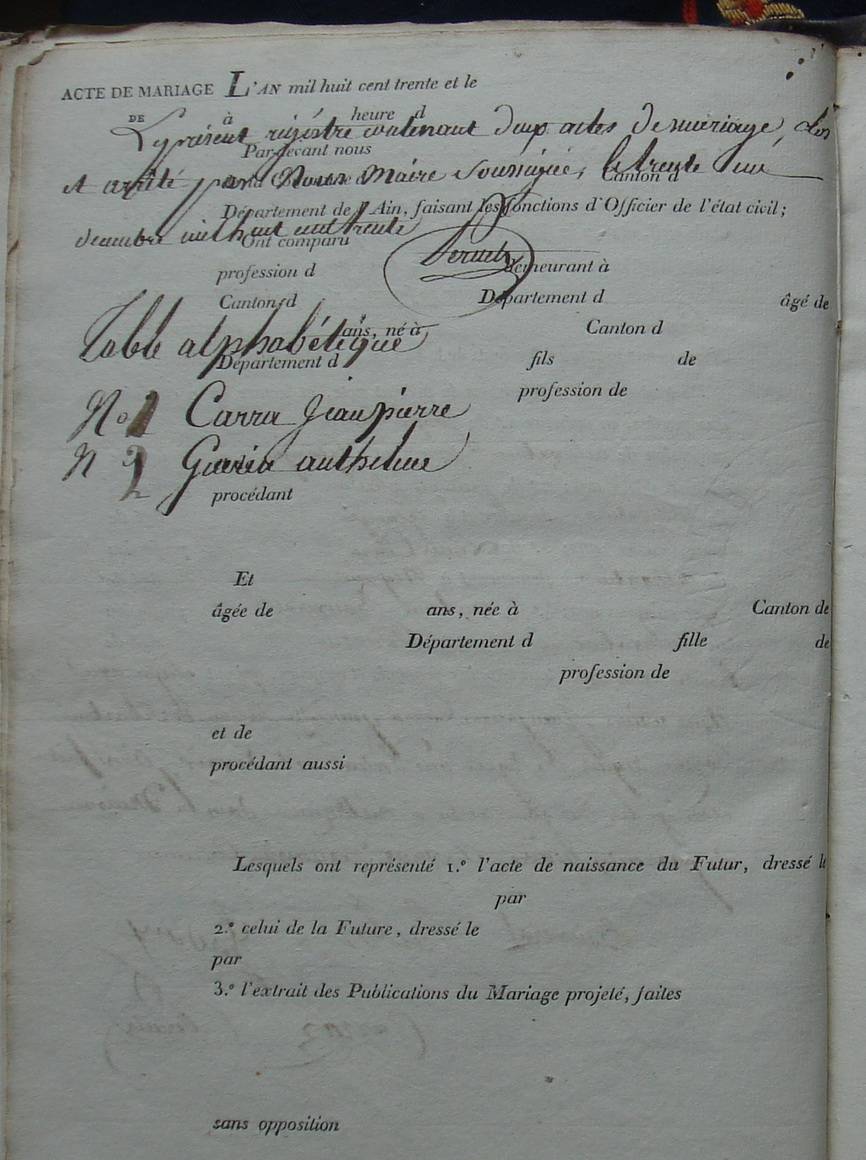 ACTE DE MARIAGE L'AN mil huit cent trente et le
DE à heure d
Le présent régistre contenant deux actes de mariage, clos
Pardevant nous
et arrêté par Nous Maire soussigné, le trente un
Canton d
Département de l'Ain, faisant les fonctions d'Officier de l'état civil;
décembre mil huit cent trente
Ont comparu
profession d demeurant à
Canton d Département d âgé de
ans, né à Canton d
Table alphabétique
Département d fils de
profession de
No 1 Carra Jean pierre
N 2 anthelme
procédant
Et
âgée de ans, née à Canton de
Département d fille de
profession de
et de
procédant aussi
Lesquels ont représenté 1.° l'acte de naissance du Futur, dressé le
par
2.° celui de la Future, dressé le
par
3.° l'extrait des Publications du Mariage projeté, faites
sans opposition